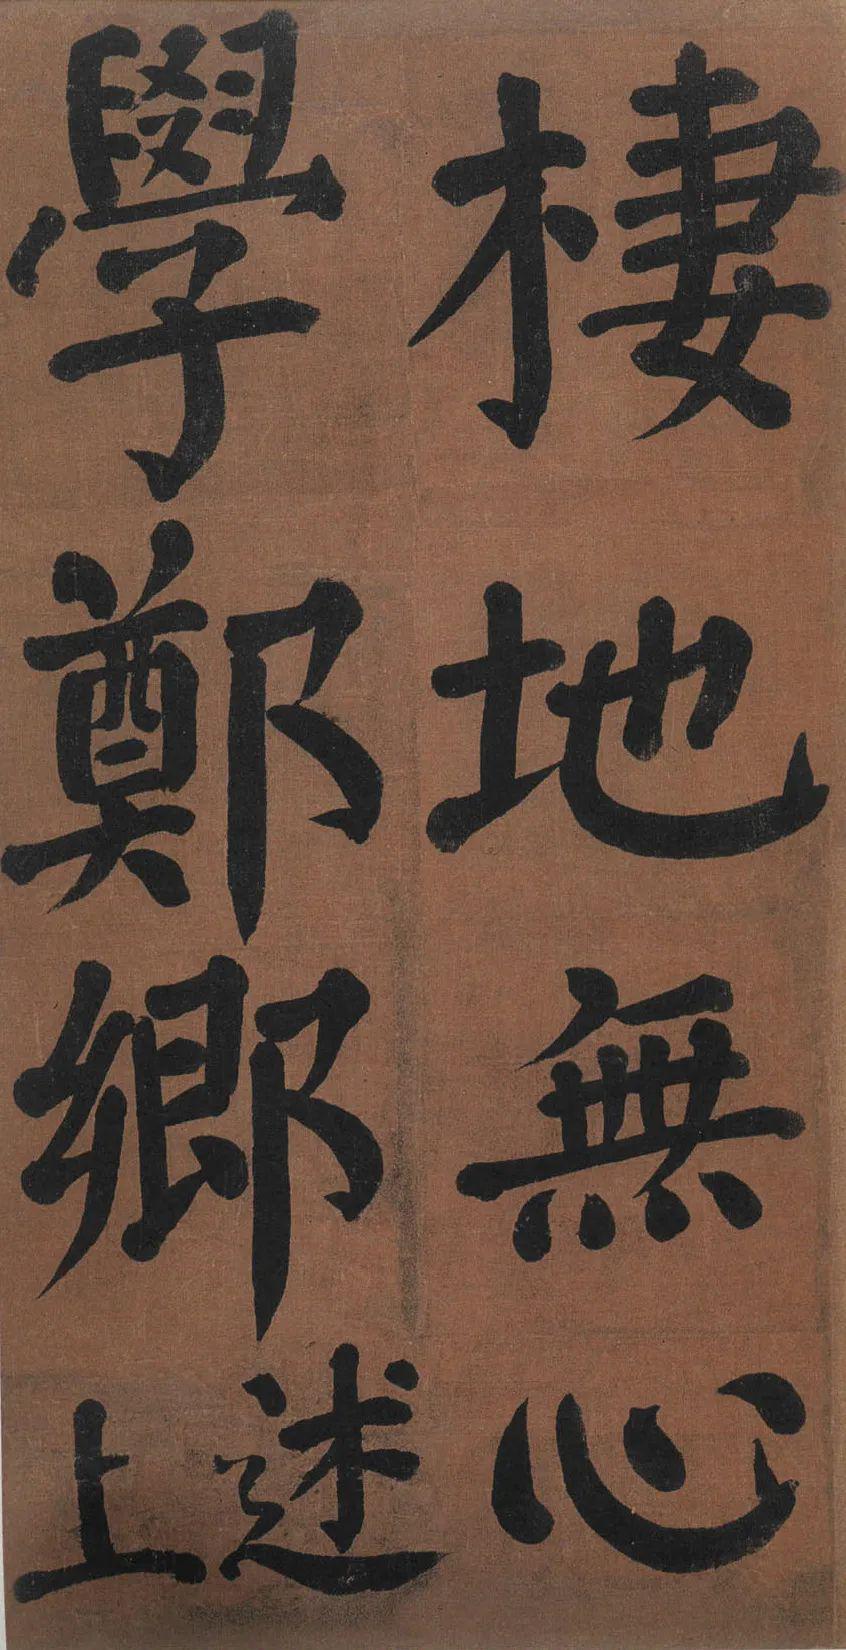 棲地無心
學鄭鄉
述上